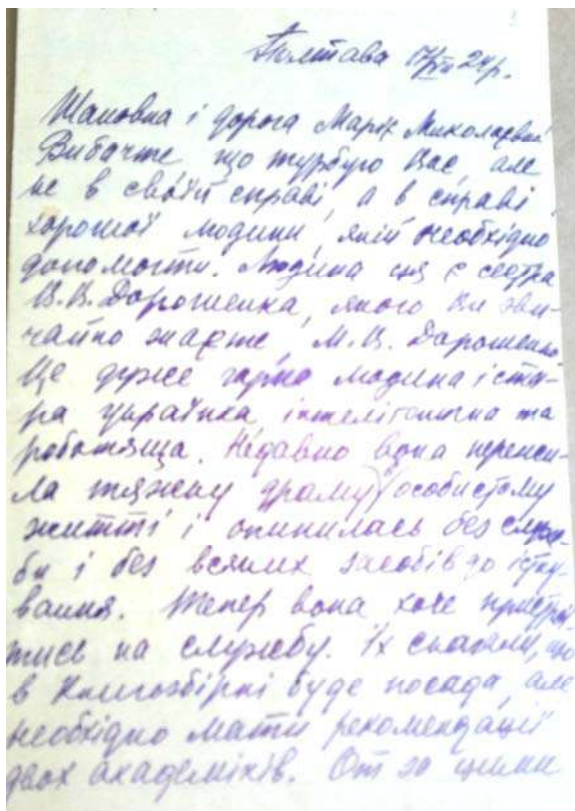 Полтава 17/VII 24 р.
Шановна і дорога Маріє Миколаєвно
Вибачте що турбую Вас, але
не в своїй справі, а в справі
хорошої людини, якій необхідно
допомогти. Людина ця є сестра
В.В. Дорошенка, якого Ви зви-
чайно знаєте, М.В. Дорошенко.
Це дуже гарна людина і ста-
ра українка, інтелігентна та
роботяща. Недавно вона перенес-
ла тяжку драму особистому
житті і опинилась без служ-
би і без всяких засобів до існу-
вання. Тепер вона хоче пристрої-
тись на службу. Їх сказали, що
в Книгозбірні буде посада, але
необхідно мати рекомендації
двох академіків. От за цими